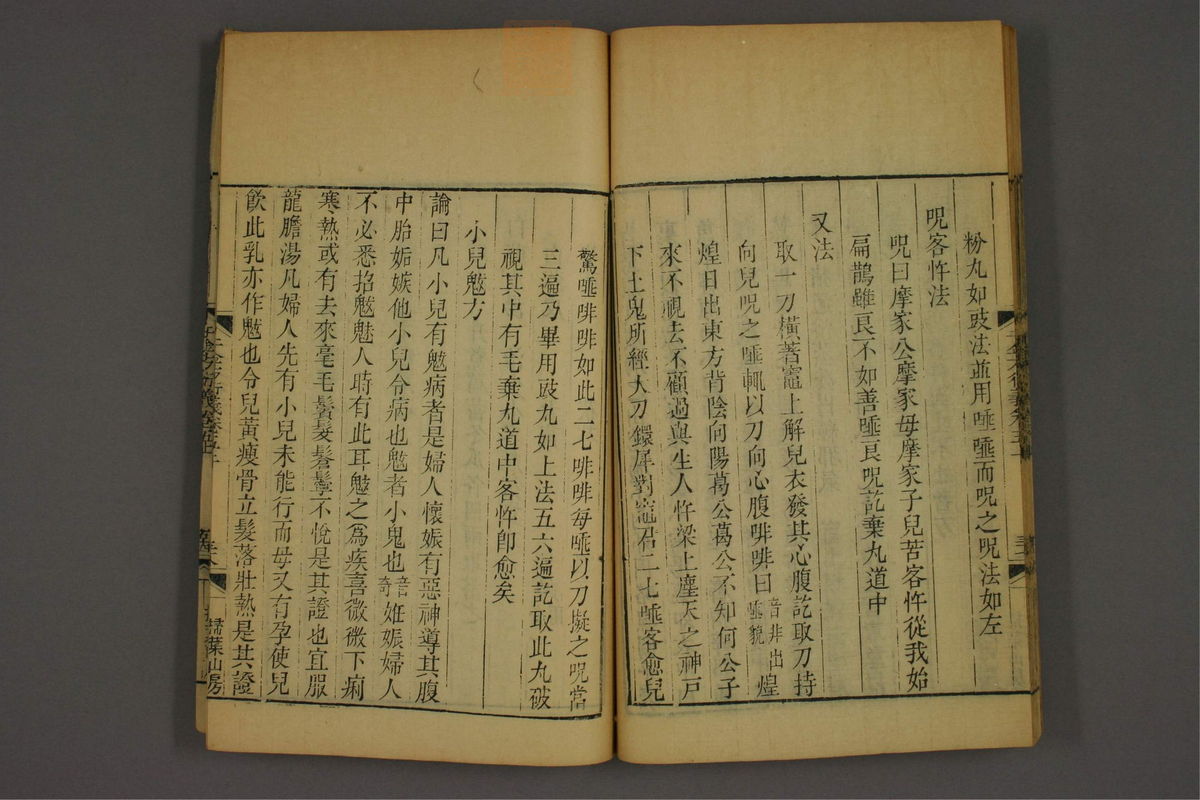 粉丸如豉法並用唾唾而呪之呪法如左
呪客忤法
呪曰摩家公摩家母摩家子兒苦客忤從我始
扁鵲雖良不如善唾良呪訖棄丸道中
又法
取一刀橫著竈上解兒衣發其心腹訖取刀持
向兒呪之唾輒以刀向心腹啡啡曰音非出唾貌煌
煌日出東方背陰向陽葛公葛公不知何公子
來不視去不顧過與生人忤梁上塵天之神戶
下土鬼所經大刀鐶犀對竈君二七唾客愈兒
驚唾啡啡如此二七啡啡每唾以刀擬之呪當
三遍乃畢用豉丸如上法五六遍訖取此丸破
視其中有毛棄丸道中客忤卽愈矣
小兒魃方
論曰凡小兒有魃病者是婦人懷娠有惡神導其腹
中胎妬嫉他小兒令病也魃者小鬼也音奇姙娠婦人
不必悉招魃魅人時有此耳魃之爲疾喜微微下痢
寒熱或有去來毫毛鬢髮鬇鬡不悅是其證也宜服
龍膽湯凡婦人先有小兒未能行而母又有孕使兒
飮此乳亦作魃也令兒黃瘦骨立髮落壯熱是其證
埽葉山房